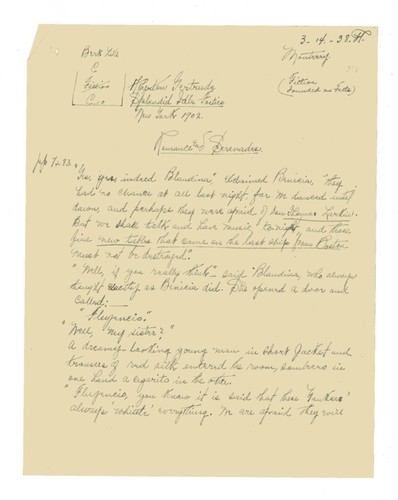 3-14-38. H.
Monterey
Berk Lib
C
Fiction
(Fiction
founded on facts)
Atherton Gertrude
Splendid Idle Forties
New York 1902.
Romance Serenades
pp 72.83.
"Yes, yes indeed Blandina" exclaimed Brinicia, "they
had no chance at all last night, for we danced until
dawn, and perhaps they were afraid of Don Thomas Larkin.
But we shall talk and have music tonight, and those
fine new tables that came on the last ship from Boston
must not be destroyed."
"Well, if you really think"— said Blandina, who always
thought exactly as Brinicia did. She opened a door and
called:—
"Flujencio."
"Well, my sister?"
A dreamy-looking young man in short jacket and
trousers of red silk entered the room, sombrero in
one hand a cigarito in the other.
"Flujencio, you know it is said that these 'Yankees'
always 'whittle' everything. We are afraid they will